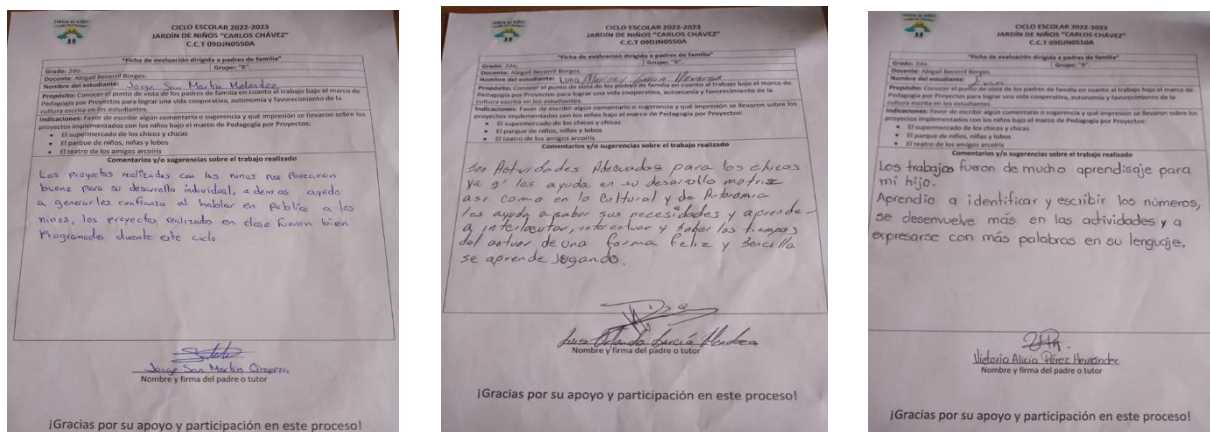 CICLO ESCOLAR 2022-2023
JARDÍN DE NIÑOS "CARLOS CHÁVEZ"
C.C.T 09DJN0550A
"Ficha de evaluación dirigida a padres de familia"
Grado: 2do. Grupo: "B".
Docente: Abigail Becerril Borges.
Nombre del estudiante: Jorge San Martin Melendez
Propósito: Conocer el punto de vista de los padres de familia en cuanto al trabajo bajo el marco de
Pedagogía por Proyectos para lograr una vida cooperativa, autonomía y favorecimiento de la
cultura escrita en los estudiantes.
Indicaciones: Favor de escribir algún comentario o sugerencia y qué impresión se llevaron sobre los
proyectos implementados con los niños bajo el marco de Pedagogía por Proyectos:
• El supermercado de los chicos y chicas
• El parque de niños, niñas y lobos
• El teatro de los amigos arcoíris
Comentarios y/o sugerencias sobre el trabajo realizado
Los proyectos realizados con los niños nos parecieron
bueno para su desarrollo individual, además ayudo
a generarles confianza al hablar en publico a los
niños, los proyectos realizado en clase fueron bien
Programados durante este ciclo
Jorge San Martin
Nombre y firma del padre o tutor
¡Gracias por su apoyo y participación en este proceso!
CICLO ESCOLAR 2022-2023
JARDÍN DE NIÑOS "CARLOS CHÁVEZ"
C.C.T 09DJN0550A
"Ficha de evaluación dirigida a padres de familia"
Grado: 2do. Grupo: "B".
Docente: Abigail Becerril Borges.
Nombre del estudiante:
Propósito: Conocer el punto de vista de los padres de familia en cuanto al trabajo bajo el marco de
Pedagogía por Proyectos para lograr una vida cooperativa, autonomía y favorecimiento de la
cultura escrita en los estudiantes.
Indicaciones: Favor de escribir algún comentario o sugerencia y qué impresión se llevaron sobre los
proyectos implementados con los niños bajo el marco de Pedagogía por Proyectos:
• El supermercado de los chicos y chicas
• El parque de niños, niñas y lobos
• El teatro de los amigos arcoíris
Comentarios y/o sugerencias sobre el trabajo realizado
Son Actividades Adecuadas para los chicos
ya q' les ayuda en su desarollo motriz
asi como en lo Cultural y de Autonomia
les ayuda a saber sus necesidades y aprende-
a interlocutar, interactuar y saber los tiempos
del actuar de una forma feliz y sencilla
se aprende Jugando.
Nombre y firma del padre o tutor
¡Gracias por su apoyo y participación en este proceso!
CICLO ESCOLAR 2022-2023
JARDÍN DE NIÑOS "CARLOS CHÁVEZ"
C.C.T 09DJN0550A
"Ficha de evaluación dirigida a padres de familia"
Grado: 2do. Grupo: "B".
Docente: Abigail Becerril Borges.
Nombre del estudiante:
Propósito: Conocer el punto de vista de los padres de familia en cuanto al trabajo bajo el marco de
Pedagogía por Proyectos para lograr una vida cooperativa, autonomía y favorecimiento de la
cultura escrita en los estudiantes.
Indicaciones: Favor de escribir algún comentario o sugerencia y qué impresión se llevaron sobre los
proyectos implementados con los niños bajo el marco de Pedagogía por Proyectos:
• El supermercado de los chicos y chicas
• El parque de niños, niñas y lobos
• El teatro de los amigos arcoíris
Comentarios y/o sugerencias sobre el trabajo realizado
Los trabajos fueron de mucho aprendisaje para
mi hijo.
Aprendio a identificar y escribir los números,
se desenvuelve más en las actividades y a
expresarse con más palabras en su lenguaje.
Victoria Alicia Pérez Hernández
Nombre y firma del padre o tutor
¡Gracias por su apoyo y participación en este proceso!